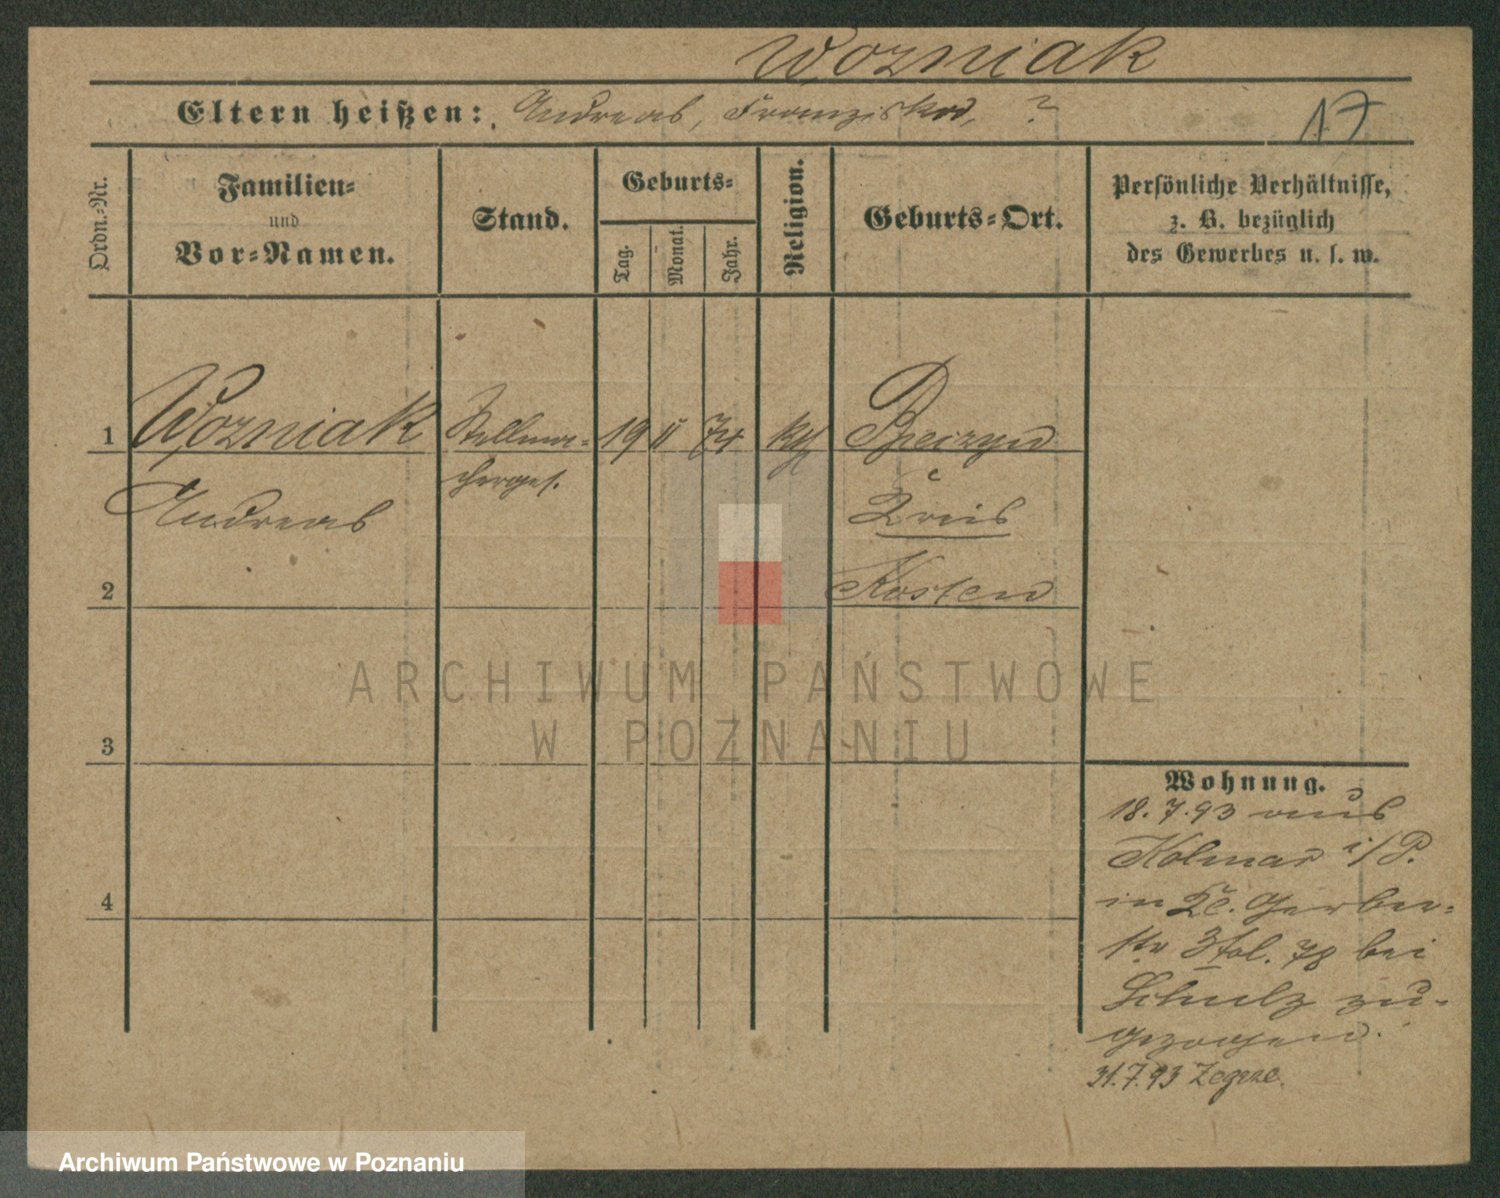 Wozniak
Eltern heißen: Andreas, Franziska, ?
17
Ordn.-Nr.
Familien-
und
Vor-Namen.
Stand.
Geburts-
Tag.
Monat.
Jahr.
Religion.
Geburts-Ort.
Persönliche Verhältnisse,
z. B. bezüglich
des Gewerbes u. s. w.
1 Wozniak Stellma- 19 II 74 kth
cherges.
Andreas
Kreis
2 Kosten
ARCHIWUM PAŃSTWOWE
W POZNANIU
3
Wohnung.
18.7.93 aus
Kolmar i/P.
4
in Kl. Gerber-
str 78 bei
Schulz zu-
gezogen.
31.7.93 Zegrze.
Archiwum Państwowe w Poznaniu